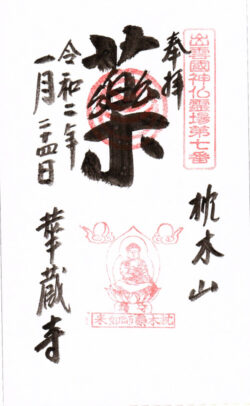 出雲國神仏霊場第七番
奉拝
藥
令和二年
一月二十四日
枕木山
華蔵寺
枕木薬師如来